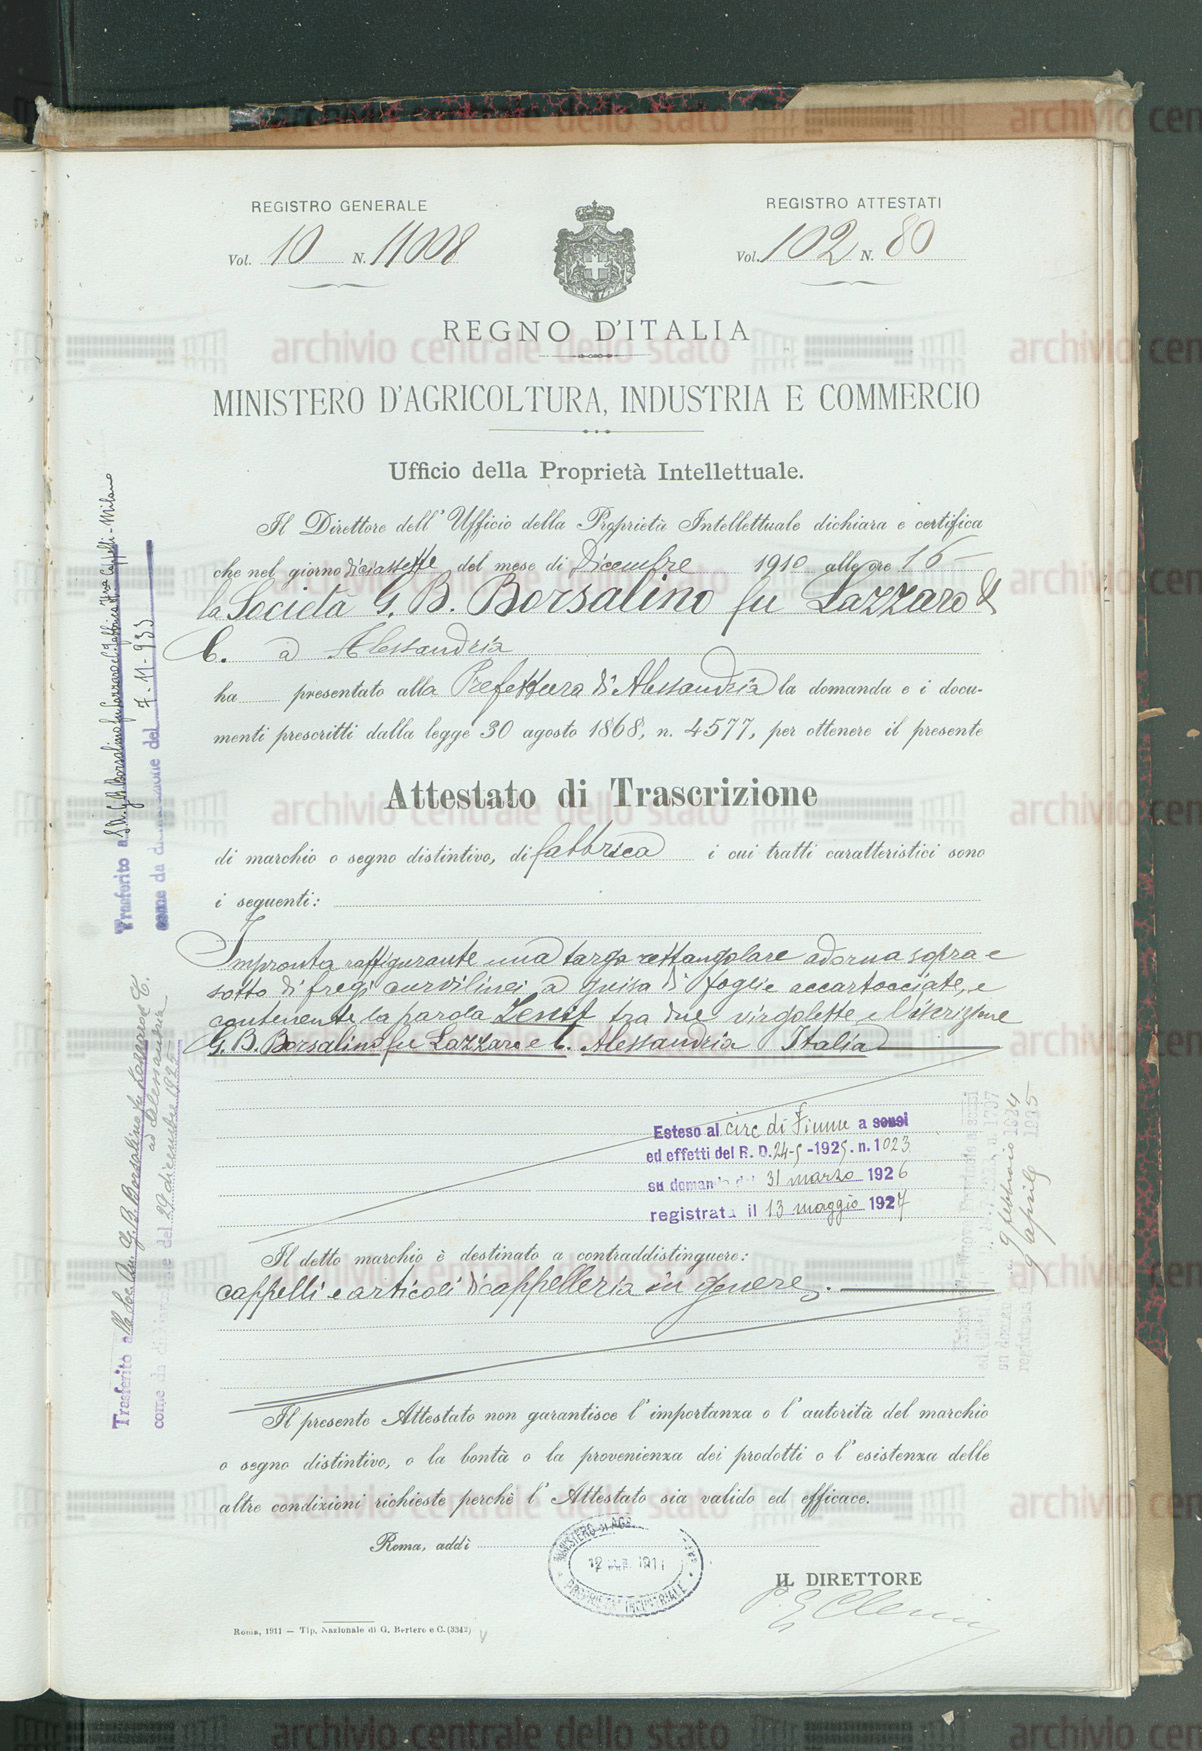 REGISTRO GENERALE
Vol. 10 N. 11008
REGISTRO ATTESTATI
Vol. 102 N. 80
REGNO D'ITALIA
MINISTERO D'AGRICOLTURA, INDUSTRIA E COMMERCIO
Ufficio della Proprietà Intellettuale.
Il Direttore dell' Ufficio della Proprietà Intellettuale dichiara e certifica
che nel giorno diciassette del mese di Dicembre 1910 alle ore 16
la Società G. B. Borsalino fu Lazzaro &
C. a Alessandria
ha presentato alla Prefettura di Alessandria la domanda e i docu-
menti prescritti dalla legge 30 agosto 1868, n. 4577, per ottenere il presente
Attestato di Trascrizione
di marchio o segno distintivo, di fabbrica i cui tratti caratteristici sono
i seguenti:
Impronta raffigurante una targa rettangolare adorna sopra e
sotto di fregi curvilinei a guisa di foglie accartocciate, e
contenente la parola Zenit tra due virgolette e l'iscrizione
G. B. Borsalino fu Lazzaro e C. Alessandria Italia
Esteso al circ di Fiume a sensi
ed effetti del R. D. 24-5-1925. n. 1023
su domanda del 31 marzo 1926
registrata il 13 maggio 1927
Il detto marchio è destinato a contraddistinguere:
cappelli e articoli di cappelleria in genere.
Il presente Attestato non garantisce l' importanza o l' autorità del marchio
o segno distintivo, o la bontà o la provenienza dei prodotti o l' esistenza delle
altre condizioni richieste perchè l' Attestato sia valido ed efficace.
Roma, addì
MINISTERO DI AGR.
1911
PROPRIETA' INDUSTRIALE
IL DIRETTORE
Roma, 1911 — Tip. Nazionale di G. Bertero e C. (3342)
Trasferito alla Soc. An. G. B. Borsalino fu Lazzaro & C.
ad Alessandria
come da dichiarazione del 29 dicembre 1925
Trasferito a S. A. G. B. Borsalino fu Lazzaro e C. Fabbrica Cappelli - Milano
come da dichiarazione del 7-11-933
9 febbraio 1924
9 aprile 1925
archivio centrale dello stato